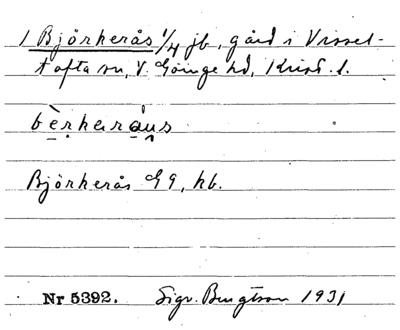 1 Björkerås 1/4 jb, gård i Vissel-
tofta sn, V. Göinge hd, Krist. l.
bè̤rkarå̀u̯s
Björkerås E9, hb.
Nr 5392. Sigv. Bengtson 1931